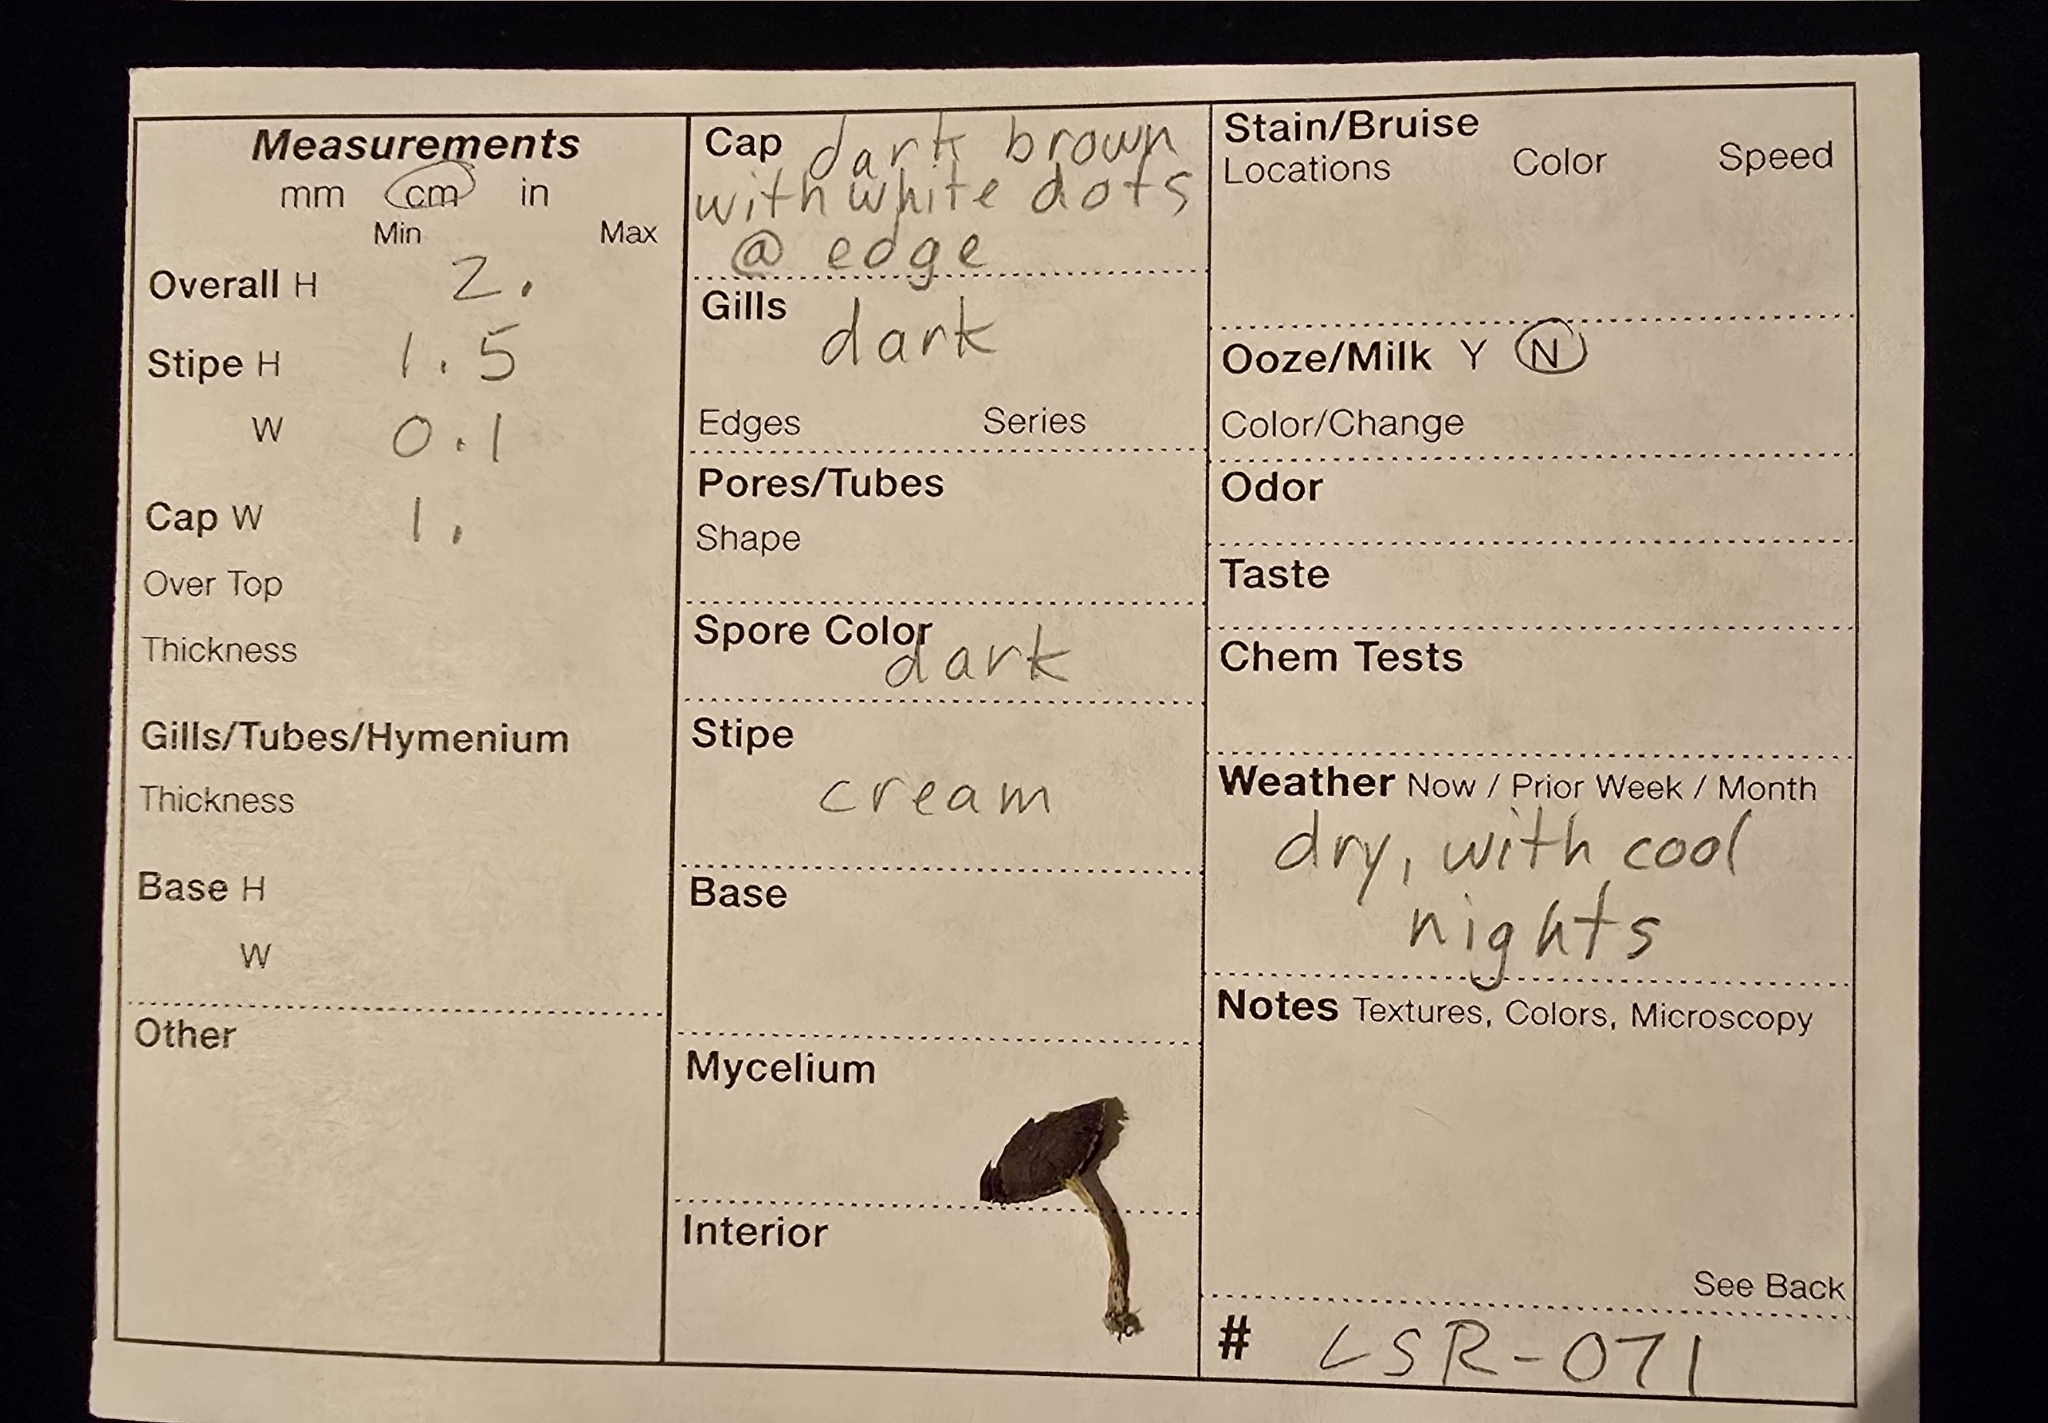 Measurements
mm cm in
Min Max
Overall H 2.
Stipe H 1.5
W 0.1
Cap W 1.
Over Top
Thickness
Gills/Tubes/Hymenium
Thickness
Base H
W
Other
Cap dark brown
with white dots
@ edge
Gills
dark
Edges Series
Pores/Tubes
Shape
Spore Color
dark
Stipe
cream
Base
Mycelium
Interior
Stain/Bruise
Locations Color Speed
Ooze/Milk Y N
Color/Change
Odor
Taste
Chem Tests
Weather Now / Prior Week / Month
dry, with cool
nights
Notes Textures, Colors, Microscopy
See Back
# LSR-071